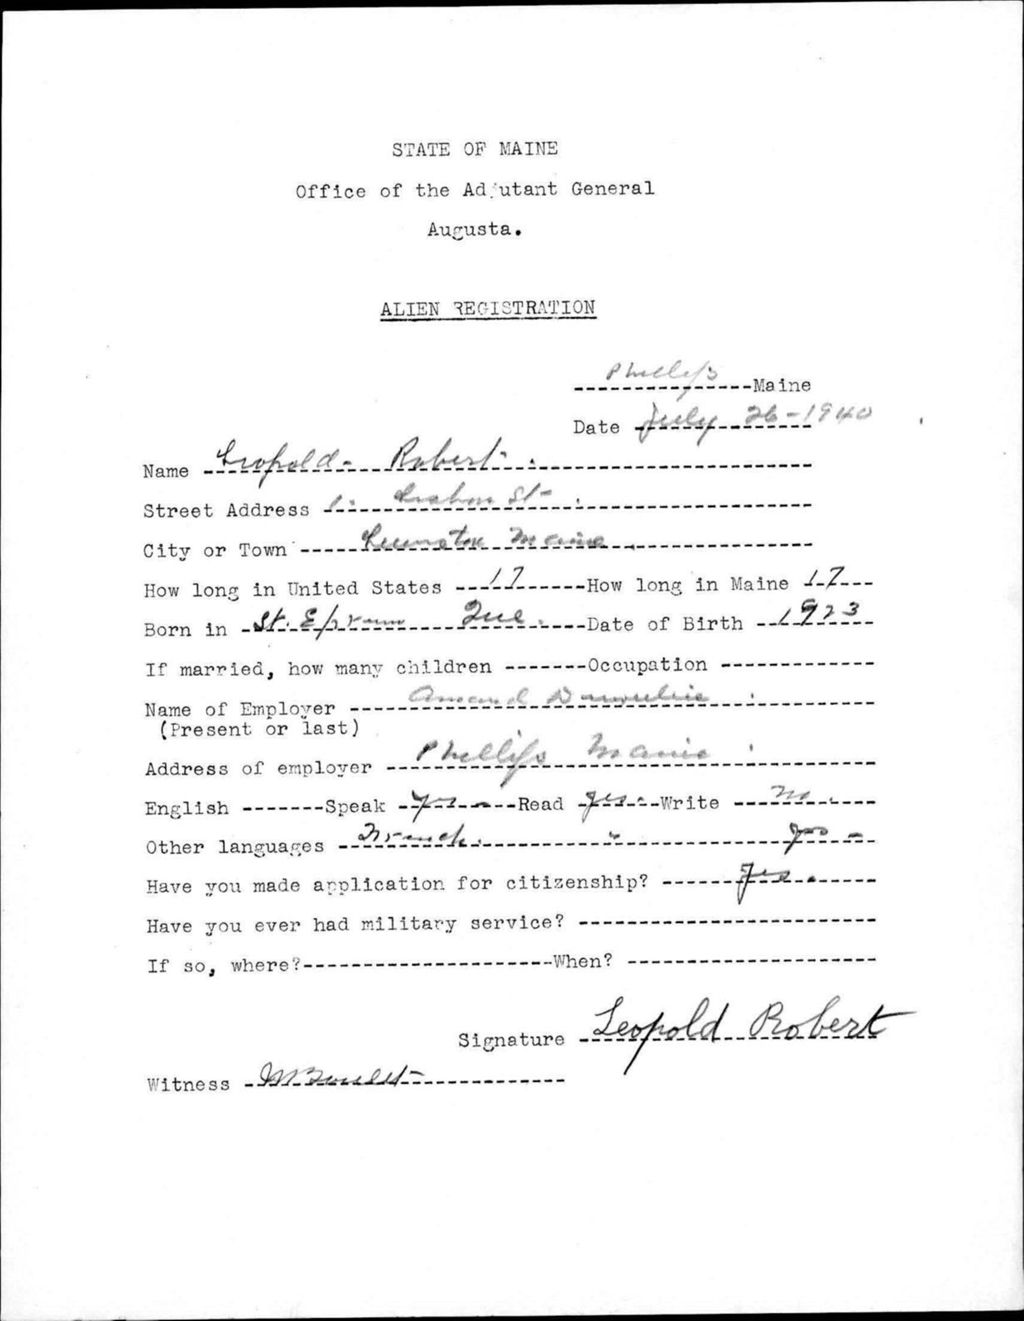 STATE OF MAINE
Office of the Adjutant General
Augusta.
ALIEN REGISTRATION
Phillips Maine
Date July 26-1940
Name Leopold Robert
Street Address Lisbon St
City or Town Lewiston Maine
How long in United States 17 How long in Maine 17
Born in St. Ephraim Que. Date of Birth 1923
If married, how many children Occupation
Name of Employer Amand
(Present or last)
Address of employer Phillips Maine
English Speak yes Read yes Write No
Other languages French " yes
Have you made application for citizenship? yes.
Have you ever had military service?
If so, where? When?
Signature Leopold Robert
Witness